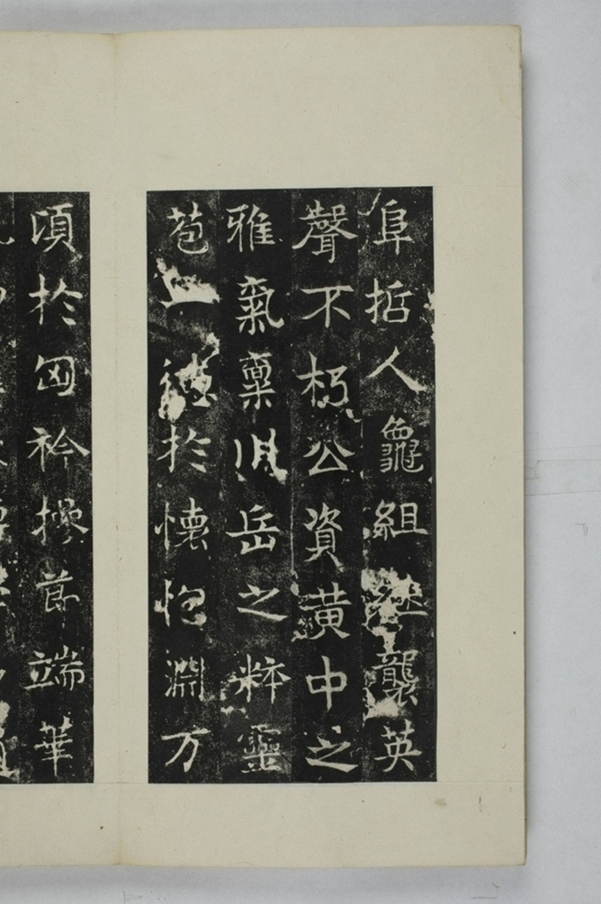 阜哲人龜組継襲英
聲不朽公資黄中之
雅氣稟川岳之粹靈
苞一德於懷抱淵万
頃於匈衿操節端華